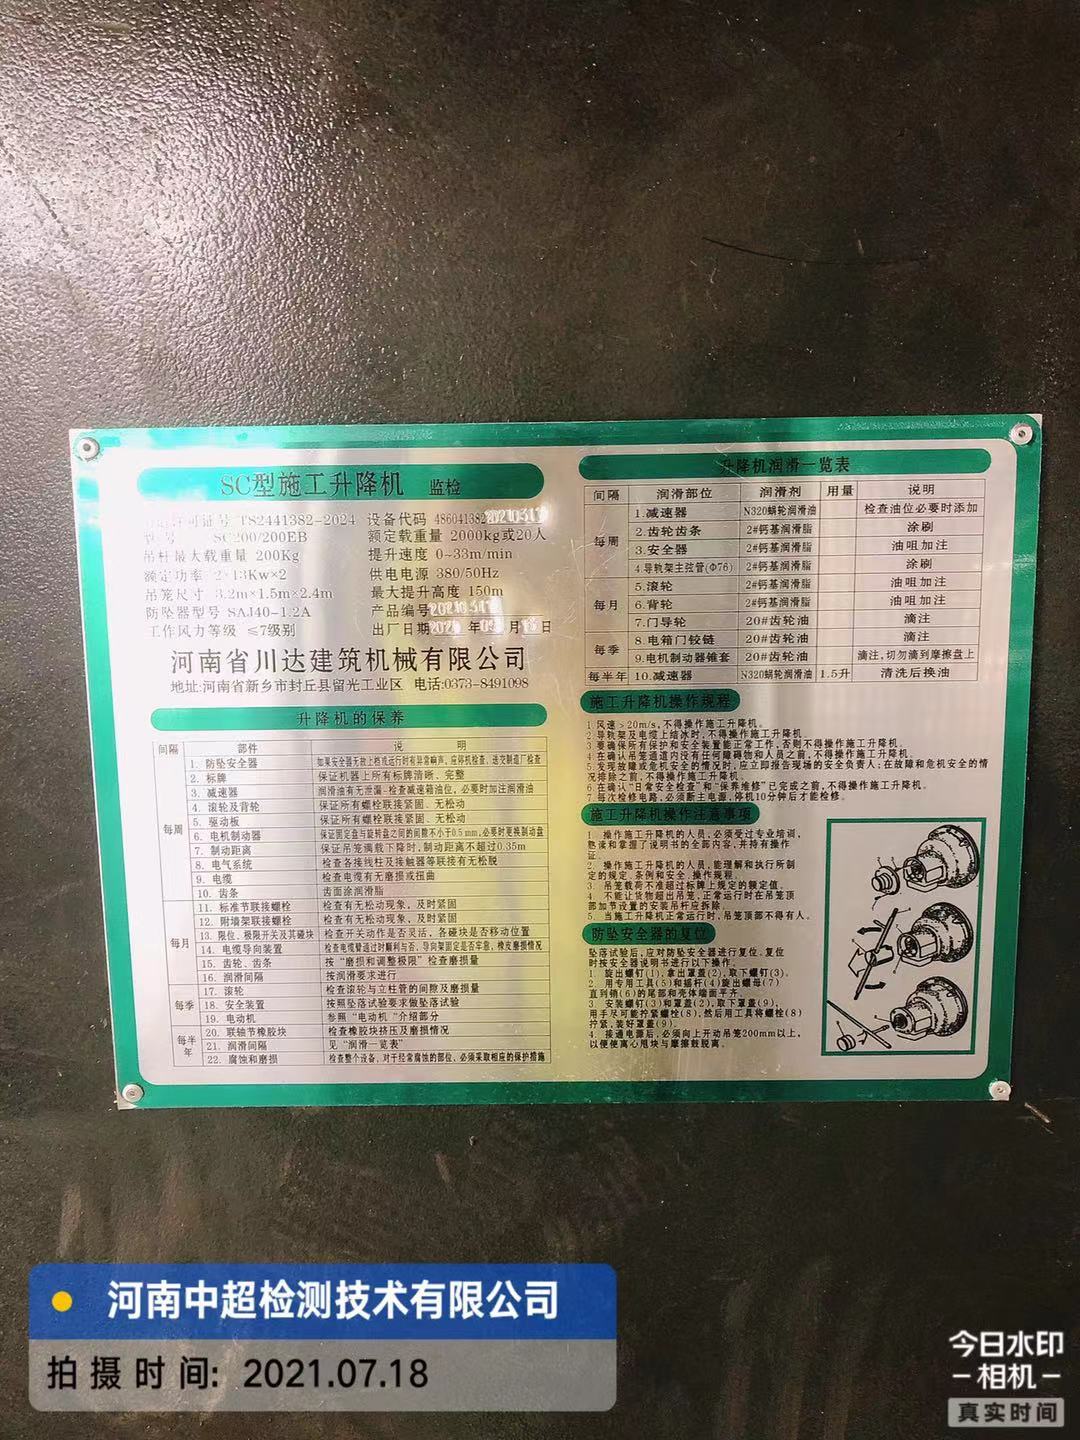 SC型施工升降机 监检
许可证号 TS2441382-2024 设备代码
型号 SC200/200EB 额定载重量 2000kg或20人
吊杆最大载重量 200Kg 提升速度 0-33m/min
额定功率 2×13Kw×2 供电电源 380/50Hz
吊笼尺寸 3.2m×1.5m×2.4m 最大提升高度 150m
防坠器型号 SAJ40-1.2A 产品编号
工作风力等级 ≤7级别 出厂日期 年 月 日
河南省川达建筑机械有限公司
地址:河南省新乡市封丘县留光工业区 电话:0373-8491098
升降机的保养
间隔 部件 说 明
每周
1. 防坠安全器 如果安全器无故上档或运行时有异常响声，应停机检查，送交制造厂检查
2. 标牌 保证机器上所有标牌清晰、完整
3. 减速器 润滑油有无泄漏-检查减速箱油位，必要时加注润滑油
4. 滚轮及背轮 保证所有螺栓联接紧固、无松动
5. 驱动板 保证所有螺栓联接紧固、无松动
6. 电机制动器 保证固定盘与旋转盘之间的间隙不小于0.5mm,必要时更换制动盘
7. 制动距离 保证吊笼满载下降时,制动距离不超过0.35m
8. 电气系统 检查各接线柱及接触器等联接有无松脱
9. 电缆 检查电缆有无磨损或扭曲
10. 齿条 齿面涂润滑脂
每月
11. 标准节联接螺栓 检查有无松动现象，及时紧固
12. 附墙架联接螺栓 检查有无松动现象，及时紧固
13. 限位、极限开关及其碰块 检查开关动作是否灵活，各碰块是否移动位置
14. 电缆导向装置 检查电缆臂通过时顺利与否、导向架固定是否牢靠、橡皮磨损情况
15. 齿轮、齿条 按“磨损和调整极限”检查磨损量
16. 润滑间隔 按润滑要求进行
每季
17. 滚轮 检查滚轮与立柱管的间隙及磨损量
18. 安全装置 按照坠落试验要求做坠落试验
19. 电动机 参照“电动机”介绍部分
每半年
20. 联轴节橡胶块 检查橡胶块挤压及磨损情况
21. 润滑间隔 见“润滑一览表”
22. 腐蚀和磨损 检查整个设备，对于经常腐蚀的部位，必须采取相应的保护措施
升降机润滑一览表
间隔 润滑部位 润滑剂 用量 说明
每周
1.减速器 N320蜗轮润滑油 检查油位必要时添加
2.齿轮齿条 2#钙基润滑脂 涂刷
3.安全器 2#钙基润滑脂 油咀加注
4.导轨架主弦管(Φ76) 2#钙基润滑脂 涂刷
每月
5.滚轮 2#钙基润滑脂 油咀加注
6.背轮 2#钙基润滑脂 油咀加注
7.门导轮 20#齿轮油 滴注
每季
8.电箱门铰链 20#齿轮油 滴注
9.电机制动器锥套 20#齿轮油 滴注,切勿滴到摩擦盘上
每半年 10.减速器 N320蜗轮润滑油 1.5升 清洗后换油
施工升降机操作规程
1.风速>20m/s,不得操作施工升降机。
2.导轨架及电缆上结冰时,不得操作施工升降机。
3.要确保所有保护和安全装置能正常工作,否则不得操作施工升降机。
4.在确认吊笼通道内没有任何障碍物和人员之前,不得操作施工升降机。
5.发现故障或危机安全的情况时,应立即报告现场的安全负责人;在故障和危机安全的情
况排除之前,不得操作施工升降机。
6.在确认“日常安全检查”和“保养维修”已完成之前,不得操作施工升降机。
7.每次检修电路,必须断主电源,停机10分钟后才能检修。
施工升降机操作注意事项
1. 操作施工升降机的人员,必须受过专业培训,
熟读和掌握了说明书的全部内容,并持有操作
证。
2. 操作施工升降机的人员,能理解和执行所制
定的规定、条例和安全、操作规程。
3. 吊笼载荷不准超过标牌上规定的额定值。
4. 不能让货物超出吊笼,正常运行时在吊笼顶
部加节设置的安装吊杆应拆除。
5. 当施工升降机正常运行时,吊笼顶部不得有人。
防坠安全器的复位
坠落试验后,应对防坠安全器进行复位,复位
时按安全器说明书进行以下操作。
1. 旋出螺钉(1),拿出罩盖(2),取下螺钉(3)。
2. 用专用工具(5)和摇杆(4)旋出螺母(7)
直到销(6)的尾部和壳体端面平齐。
3. 安装螺钉(3)和罩盖(2),取下罩盖(9),
用手尽可能拧紧螺栓(8),然后用工具将螺栓(8)
拧紧,装好罩盖(9)。
4. 接通电源后,必须向上开动吊笼200mm以上,
以便使离心甩块与摩擦鼓脱离。
河南中超检测技术有限公司
拍 摄 时 间: 2021.07.18
今日水印
相机
真实时间